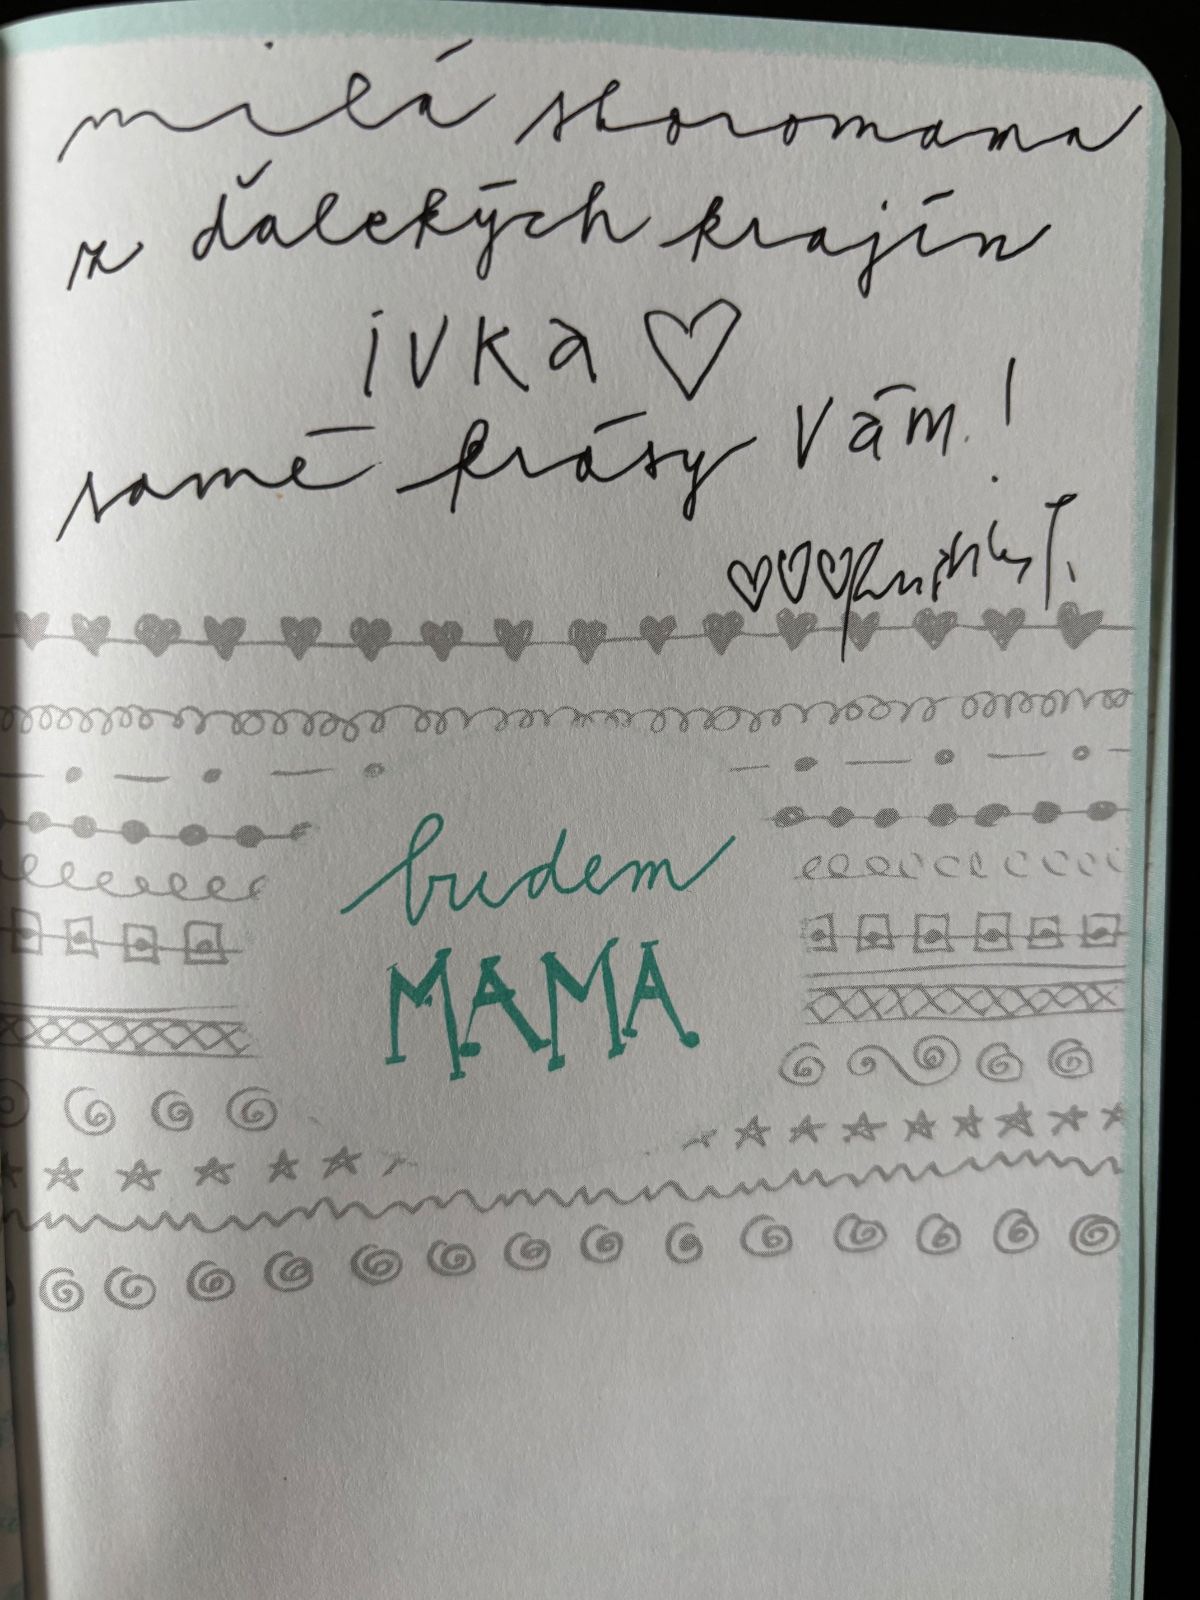 milá skoromama
z ďalekých krajín
ivka ♡
samé krásy vám!
♡♡♡
budem
MAMA